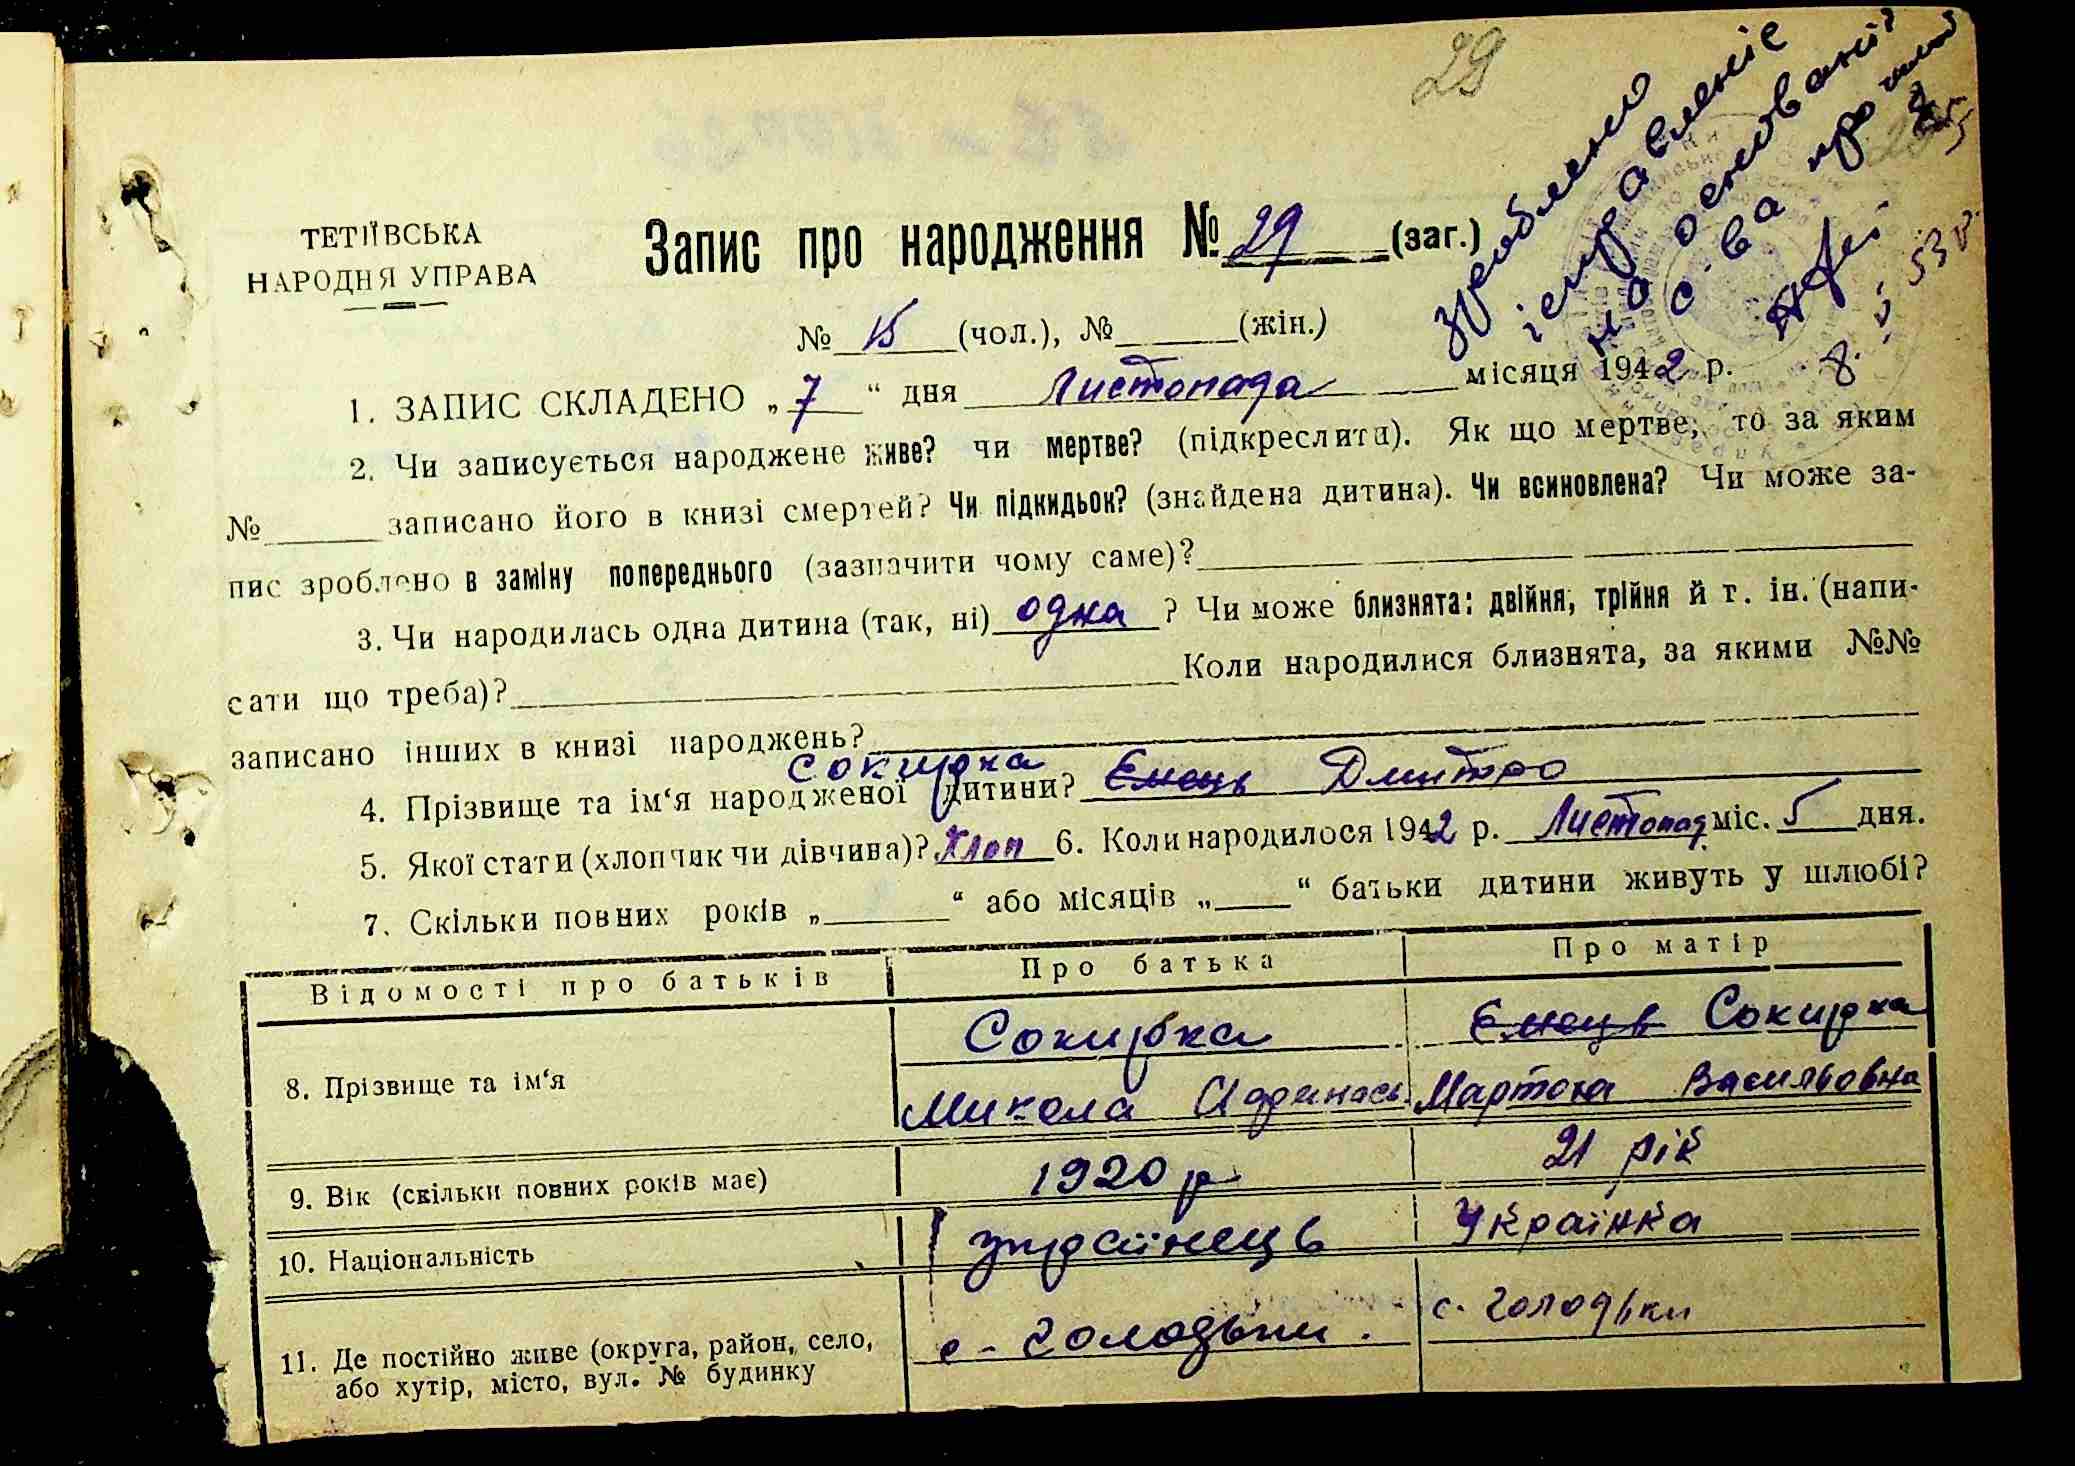 29
зроблено
ісправленіє
на основованії
с-ва про
8. V 53 р.
ТЕТІЇВСЬКА
НАРОДНЯ УПРАВА
Запис про народження № 29 (заг.)
№ 15 (чол.), № (жін.)
1. ЗАПИС СКЛАДЕНО „7“ дня Листопада місяця 1942 р.
2. Чи записується народжене живе? чи мертве? (підкреслити). Як що мертве, то за яким
№ записано його в книзі смертей? Чи підкидьок? (знайдена дитина). Чи всиновлена? Чи може за-
пис зроблено в заміну попереднього (зазначити чому саме)?
3. Чи народилась одна дитина (так, ні) одна ? Чи може близнята: двійня, трійня й т. ін. (напи-
сати що треба)? Коли народилися близнята, за якими №№
записано інших в книзі народжень?
Сокирка
4. Прізвище та ім‘я народженої дитини? Ємець Дмитро
5. Якої стати (хлопчик чи дівчина)? Хлоп 6. Коли народилося 1942 р. Листопад міс. 5 дня.
7. Скільки повних років „ “ або місяців „ “ батьки дитини живуть у шлюбі?
Відомості про батьків Про батька Про матір
8. Прізвище та ім‘я
Сокирка Ємець Сокирка
Микола Мартоха Васильовна
9. Вік (скільки повних років має) 1920 р 21 рік
10. Національність українець Українка
11. Де постійно живе (округа, район, село, с - Голодьки. с. Голодьки
або хутір, місто, вул. № будинку